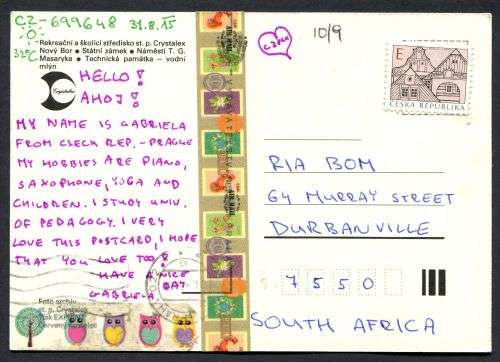 CZ-699648 31.8.15
32°C
Rekreační a školící středisko st. p. Crystalex
Nový Bor • Státní zámek • Náměstí T. G.
Masaryka • Technická památka – vodní
mlýn
Crystalex
HELLO!
AHOJ!
MY NAME IS GABRIELA
FROM CZECH REP. - PRAGUE
MY HOBBIES ARE PIANO,
SAXOPHONE, YOGA AND
CHILDREN. I STUDY UNIV.
OF PEDAGOGY. I VERY
LOVE THIS POSTCARD, I HOPE
THAT YOU LOVE TOO!
HAVE A NICE
DAY
GABRIELA
Foto archiv
st. p. Crystalex
10/9
CZECH
E
ČESKÁ REPUBLIKA
RIA BOM
64 MURRAY STREET
DURBANVILLE
7550
SOUTH AFRICA